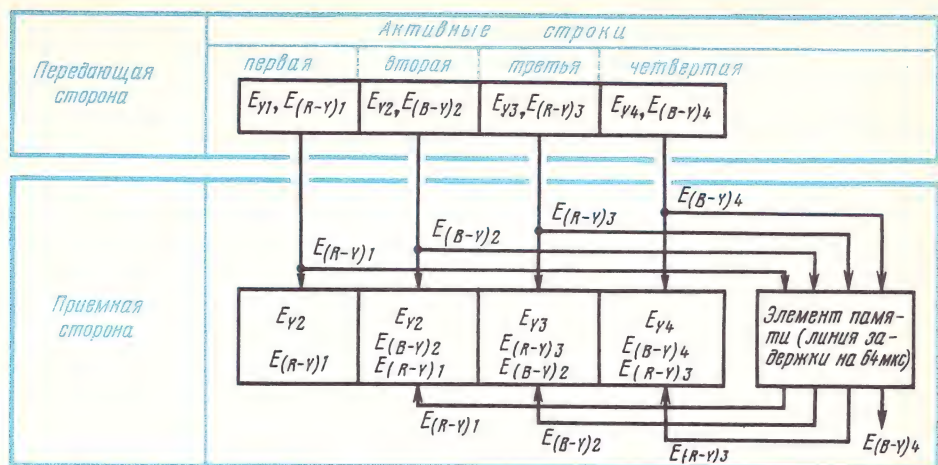 Активные строки
Передающая
сторона
первая вторая третья четвертая
E_{Y1}, E_{(R-Y)1} E_{Y2}, E_{(B-Y)2} E_{Y3}, E_{(R-Y)3} E_{Y4}, E_{(B-Y)4}
E_{(B-Y)4}
E_{(R-Y)3}
E_{(B-Y)2}
E_{(R-Y)1}
Приемная
сторона
E_{Y2}
E_{(R-Y)1}
E_{Y2}
E_{(B-Y)2}
E_{(R-Y)1}
E_{Y3}
E_{(R-Y)3}
E_{(B-Y)2}
E_{Y4}
E_{(B-Y)4}
E_{(R-Y)3}
Элемент памя-
ти (линия за-
держки на 64мкс)
E_{(R-Y)1}
E_{(B-Y)2}
E_{(R-Y)3}
E_{(B-Y)4}